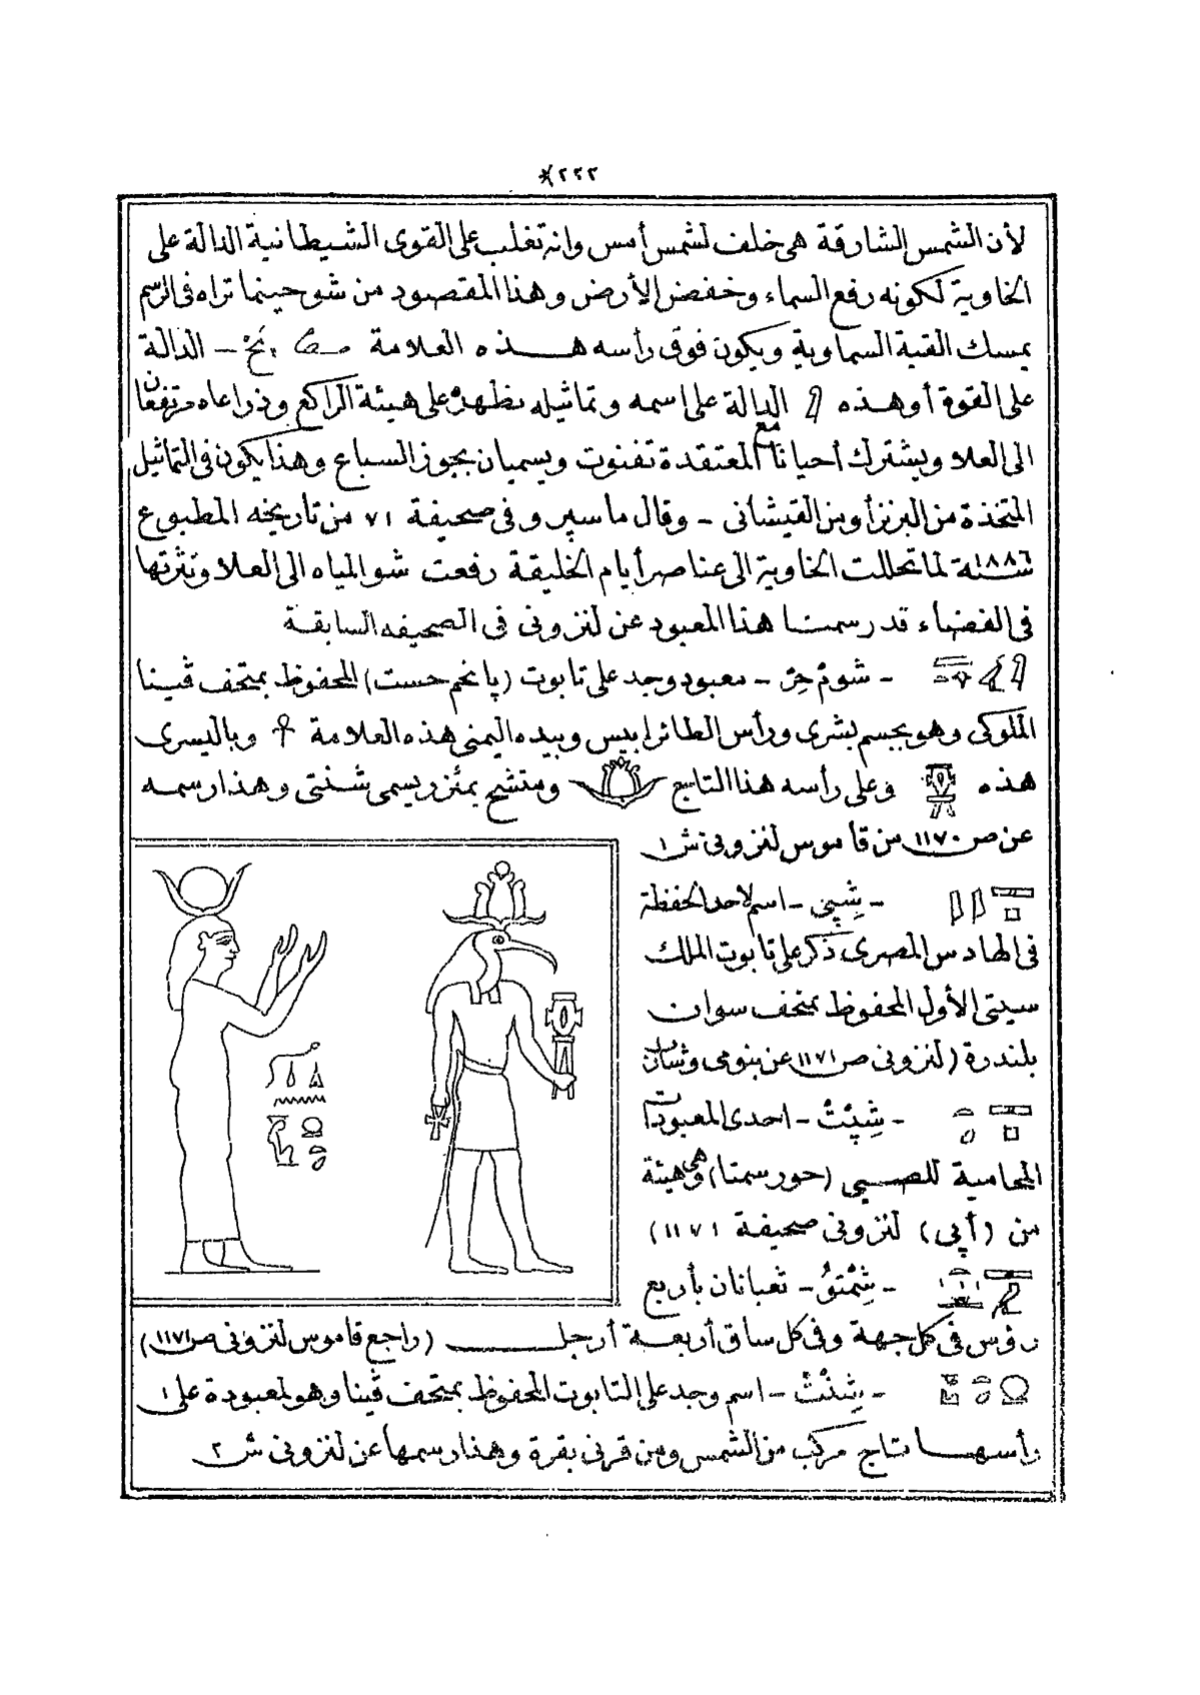 *٢٢٢
لأن الشمس الشارقة هى خلف لشمس أمس وانه تغلب على القوى الشيطانية الدالة على
الخاوية لكونه رفع السماء وخفض الأرض وهذا المقصود من شو حينما تراه فى الرسم
يمسك القبة السماوية ويكون فوق رأسه هذه العلامة نَخْ — الدالة
على القوة أو هذه الدالة على اسمه وتماثيله تظهره على هيئة الراكع وذراعاه مرتفعان
الى العلا ويشترك أحيانا مع المعتقدة تفنوت ويسميان بجوز السباع وهذا يكون فى التماثيل
المتخذة من البرنز أو من القيشانى - وقال ماسپرو فى صحيفة ٧١ من تاريخه المطبوع
سنة ١٨٨٦ لما تحللت الخاوية الى عناصر أيام الخليقة رفعت شو المياه الى العلا ونثرتها
فى الفضاء قد رسمنا هذا المعبود عن لنزونى فى الصحيفه السابقة
- شومْ حِرْ - معبود وجد على تابوت (پانخم حست) المحفوظ بمتحف ڤينا
الملوكى وهو بجسم بشرى ورأس الطائر ابيس وبيده اليمنى هذه العلامة ☥ وباليسرى
هذه وعلى رأسه هذا التاج ومتشح بمئزر يسمى شنتى وهذا رسمه
عن ص ١١٧٠ من قاموس لنزونى ش ١
- شِپِى - اسم لاحد الحفظة
فى الهادس المصرى ذكر على تابوت الملك
سيتى الأول المحفوظ بمتحف سوان
بلندرة (لنزونى ص ١١٧١ عن بنومى وشارل
- شِپِتْ - احدى المعبودات
المحامية للصبى (حورسمتا) وهى هيئة
من (أپى) لنزونى صحيفة ١١٧١)
- شِمْتُو - ثعبانان بأربع
رؤس فى كل جهة وفى كل ساق أربعة أرجل (راجع قاموس لنزونى ص ١١٧١)
- شِنْتْ - اسم وجد على التابوت المحفوظ بمتحف ڤينا وهو لمعبودة على
رأسها تاج مركب من الشمس ومن قرنى بقرة وهذا رسمها عن لنزونى ش ٢